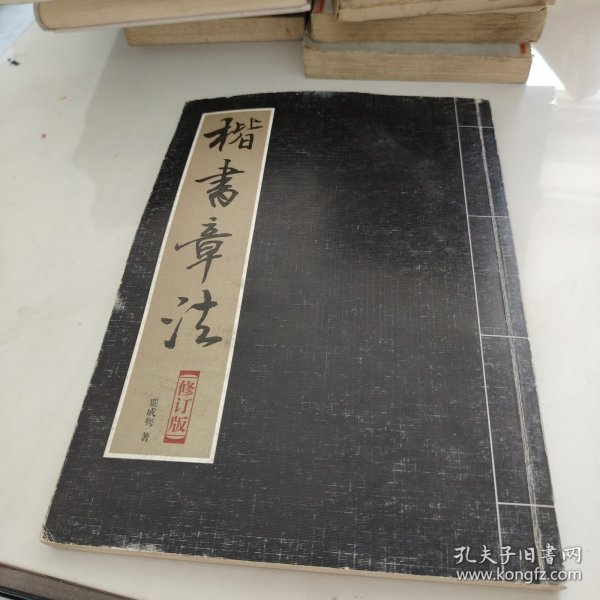 楷书章法
【修订版】
粟成隽 著
孔夫子旧书网
www.kongfz.com